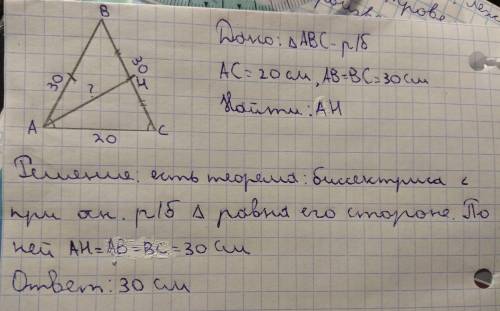 B
Дано: △ABC - р/б
30
30
H
AC = 20 см, AB = BC = 30 см
?
Найти: AH
A
20
C
Решение. есть теорема: биссектриса с
при ок. р/б △ равна его стороне. По
ней AH = AB = BC = 30 см
Ответ: 30 см